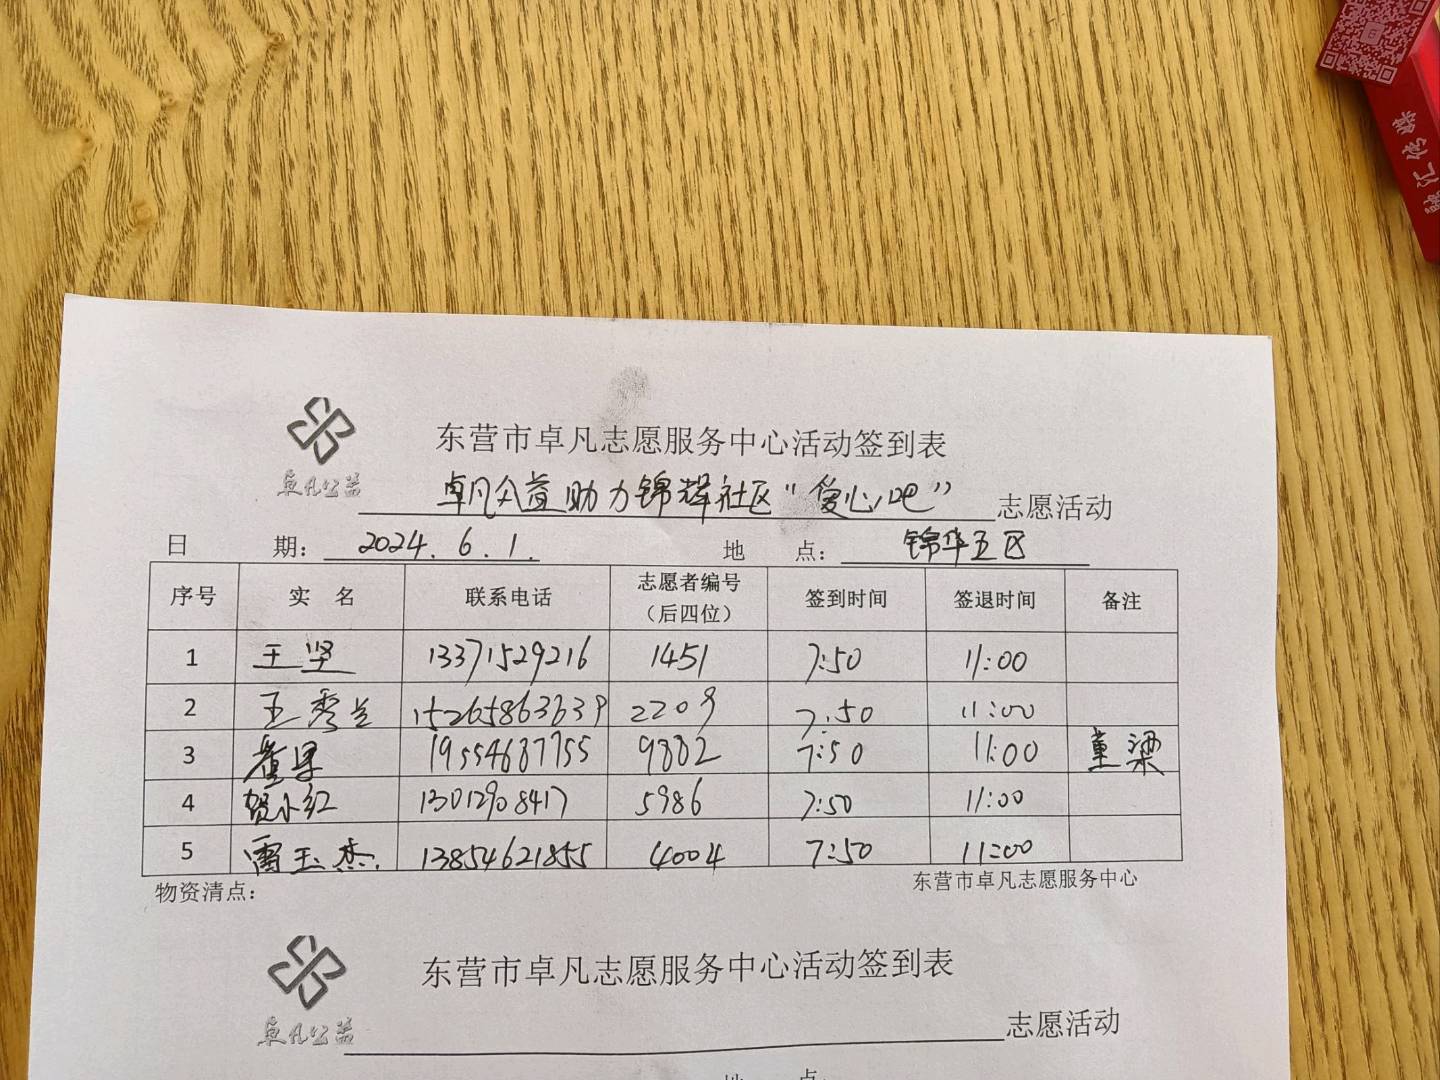 东营市卓凡志愿服务中心活动签到表
卓凡公益
卓凡公益助力锦辉社区“爱心吧”志愿活动
日 期：2024.6.1. 地 点：锦华五区
序号 实 名 联系电话 志愿者编号（后四位） 签到时间 签退时间 备注
1 王坚 13371529216 1451 7:50 11:00
2 王秀兰 15265863639 2209 7:50 11:00
3 19554687755 9882 7:50 11:00 董梁
4 贺小红 13012908417 5986 7:50 11:00
5 雷玉杰 13854621855 4004 7:50 11:00
物资清点： 东营市卓凡志愿服务中心
东营市卓凡志愿服务中心活动签到表
卓凡公益
志愿活动
地 点：